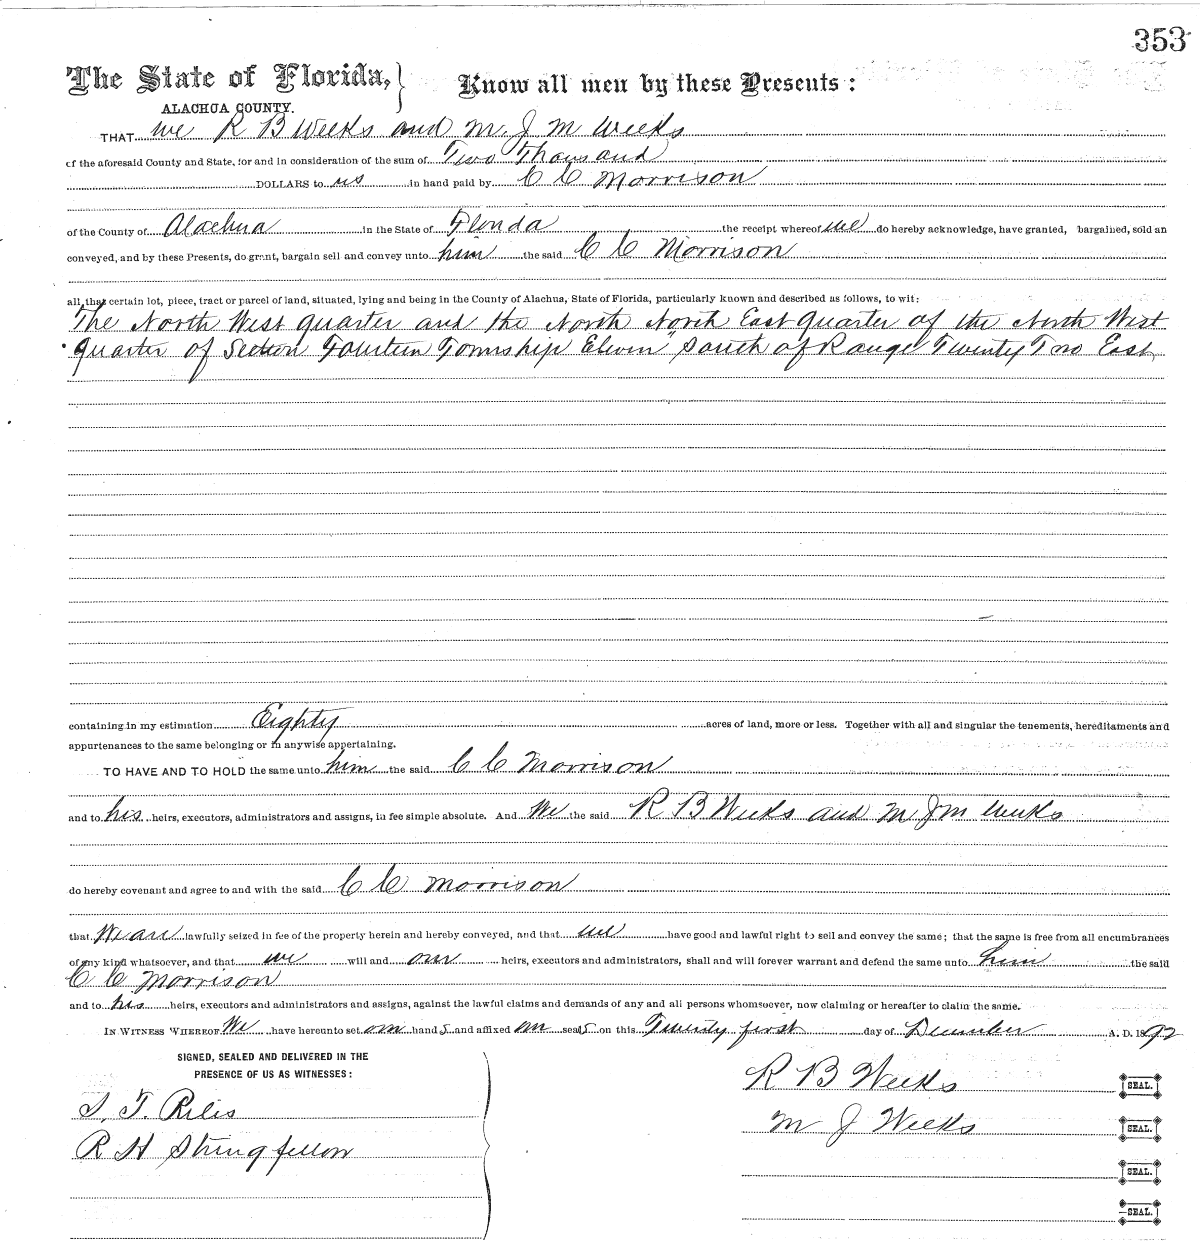 353
The State of Florida, } Know all men by these Presents :
ALACHUA COUNTY.
THAT we R B Weeks and M. J M Weeks
of the aforesaid County and State, for and in consideration of the sum of Two Thousand
DOLLARS to us in hand paid by C C Morrison
of the County of Alachua in the State of Florida the receipt whereof we do hereby acknowledge, have granted, bargained, sold an
conveyed, and by these Presents, do grant, bargain sell and convey unto him the said C C Morrison
all that certain lot, piece, tract or parcel of land, situated, lying and being in the County of Alachua, State of Florida, particularly known and described as follows, to wit:
The North West quarter and the North North East quarter of the North West
quarter of Section Fourteen Township "Eleven" South of Range Twenty Two East
containing in my estimation Eighty acres of land, more or less. Together with all and singular the tenements, hereditaments and
appurtenances to the same belonging or in anywise appertaining.
TO HAVE AND TO HOLD the same unto him the said C C Morrison
and to his heirs, executors, administrators and assigns, in fee simple absolute. And We the said R B Weeks and M J M Weeks
do hereby covenant and agree to and with the said C C Morrison
that We are lawfully seized in fee of the property herein and hereby conveyed, and that we have good and lawful right to sell and convey the same; that the same is free from all encumbrances
of any kind whatsoever, and that we will and our heirs, executors and administrators, shall and will forever warrant and defend the same unto him the said
C C Morrison
and to his heirs, executors and administrators and assigns, against the lawful claims and demands of any and all persons whomsoever, now claiming or hereafter to claim the same.
IN WITNESS WHEREOF We have hereunto set our hand s and affixed our seal s on this Twenty first day of December A. D. 1892
SIGNED, SEALED AND DELIVERED IN THE
PRESENCE OF US AS WITNESSES:
R B Weeks SEAL.
M J Weeks SEAL.
R H Stringfellow
SEAL.
SEAL.